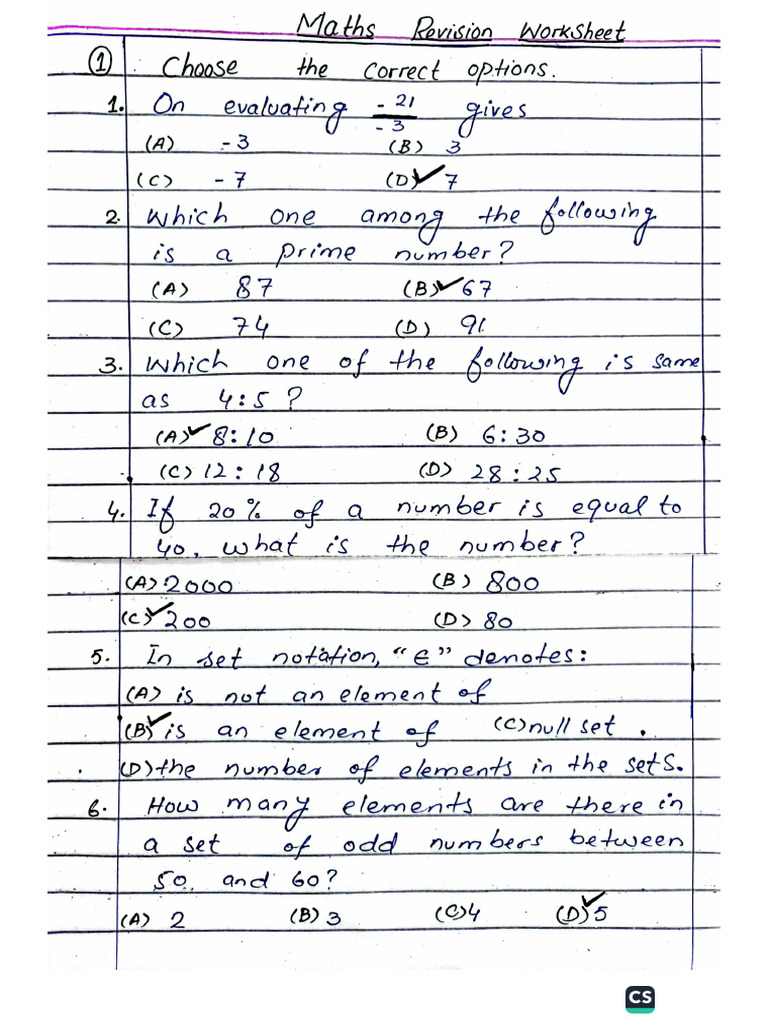 Maths Revision Worksheet
① Choose the correct options.
1. On evaluating -21/-3 gives
(A) -3 (B) 3
(C) -7 (D)✓ 7
2. Which one among the following
is a prime number?
(A) 87 (B)✓ 67
(C) 74 (D) 91
3. Which one of the following is same
as 4:5?
(A)✓ 8:10 (B) 6:30
(C) 12:18 (D) 28:25
4. If 20% of a number is equal to
40, what is the number?
(A) 2000 (B) 800
(C)✓ 200 (D) 80
5. In set notation, "∈" denotes:
(A) is not an element of
(B)✓ is an element of (C) null set.
(D) the number of elements in the sets.
6. How many elements are there in
a set of odd numbers between
50 and 60?
(A) 2 (B) 3 (C) 4 (D)✓ 5
CS